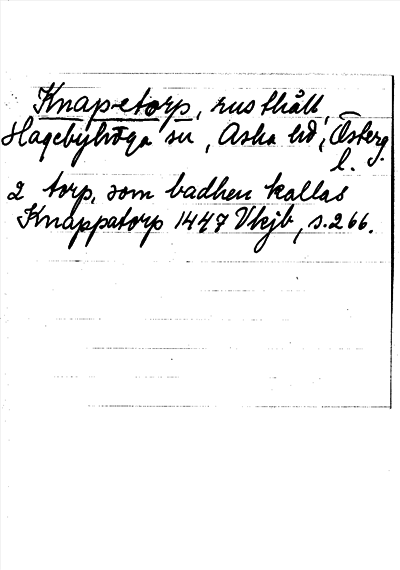 Knapetorp, rusthåll,
Hagebyhöga sn, Aska hd, Österg.
l.
2 torp, som badhen kallas
Knappatorp 1447 Vkjb, s. 266.